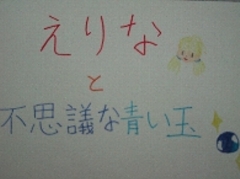 えりな
と
不思議な青い玉